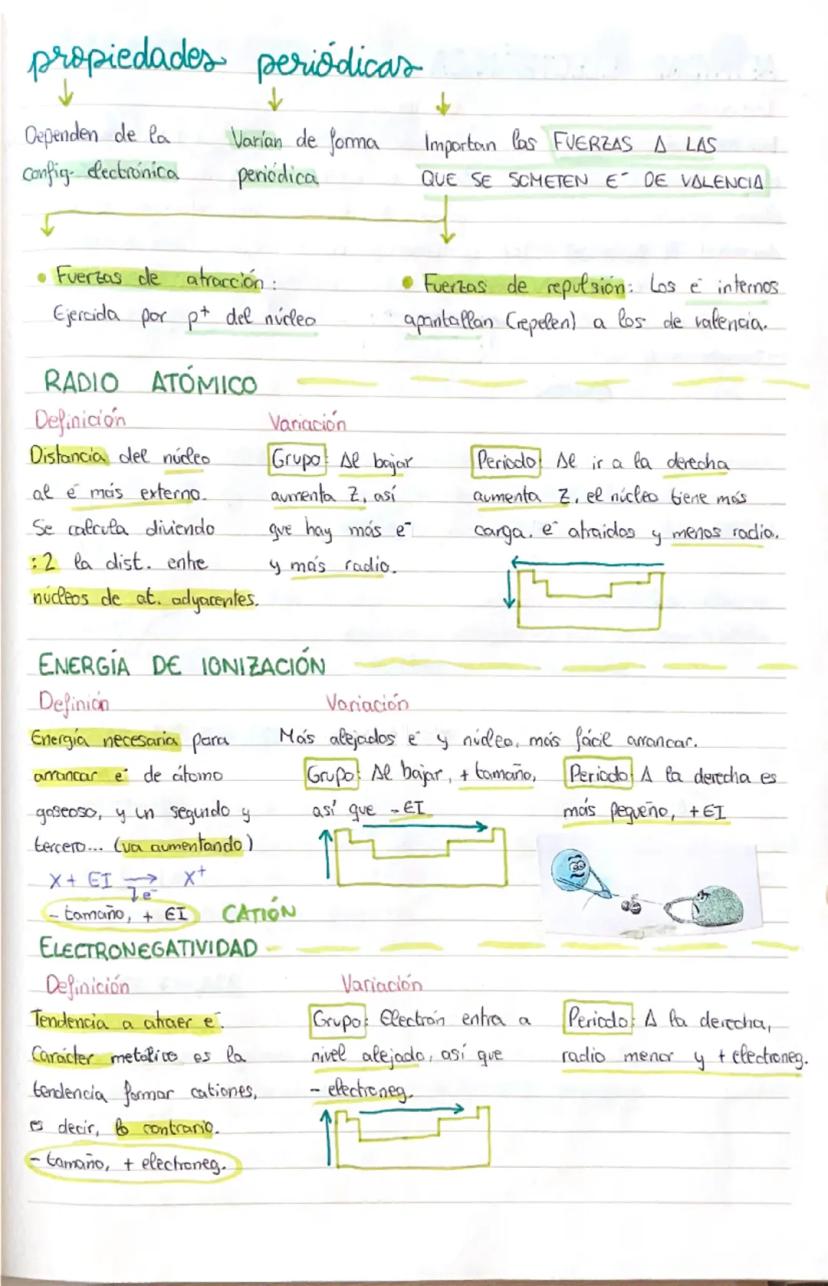 propiedades periódicas
Dependen de la
config. electrónica
Varían de forma
periódica
Importan las FUERZAS A LAS
QUE SE SOMETEN E⁻ DE VALENCIA
• Fuerzas de atracción:
Ejercida por p⁺ del núcleo
• Fuerzas de repulsión: Los e⁻ internos
apantallan (repelen) a los de valencia.
RADIO ATÓMICO
Definición
Distancia del núcleo
al e⁻ más externo.
Se calcula diviendo
:2 la dist. entre
núcleos de at. adyacentes.
Variación
Grupo: Al bajar
aumenta Z, así
que hay más e⁻
y más radio.
Periodo: Al ir a la derecha
aumenta Z, el núcleo tiene más
carga. e⁻ atraidos y menos radio.
ENERGÍA DE IONIZACIÓN
Definión
Energía necesaria para
arrancar e⁻ de átomo
gaseoso, y un segundo y
tercero... (va aumentando)
X + EI → X⁺
1e⁻
- tamaño, + EI CATIÓN
Variación
Más alejados e⁻ y núcleo, más fácil arrancar.
Grupo: Al bajar, + tamaño,
así que - EI
Periodo: A la derecha es
más pequeño, + EI
ELECTRONEGATIVIDAD
Definición
Tendencia a atraer e⁻.
Carácter metálico es la
tendencia formar cationes,
es decir, lo contrario.
- tamaño, + electroneg.
Variación
Grupo: Electrón entra a
nivel alejado, así que
- electroneg.
Periodo: A la derecha,
radio menor y + electroneg.